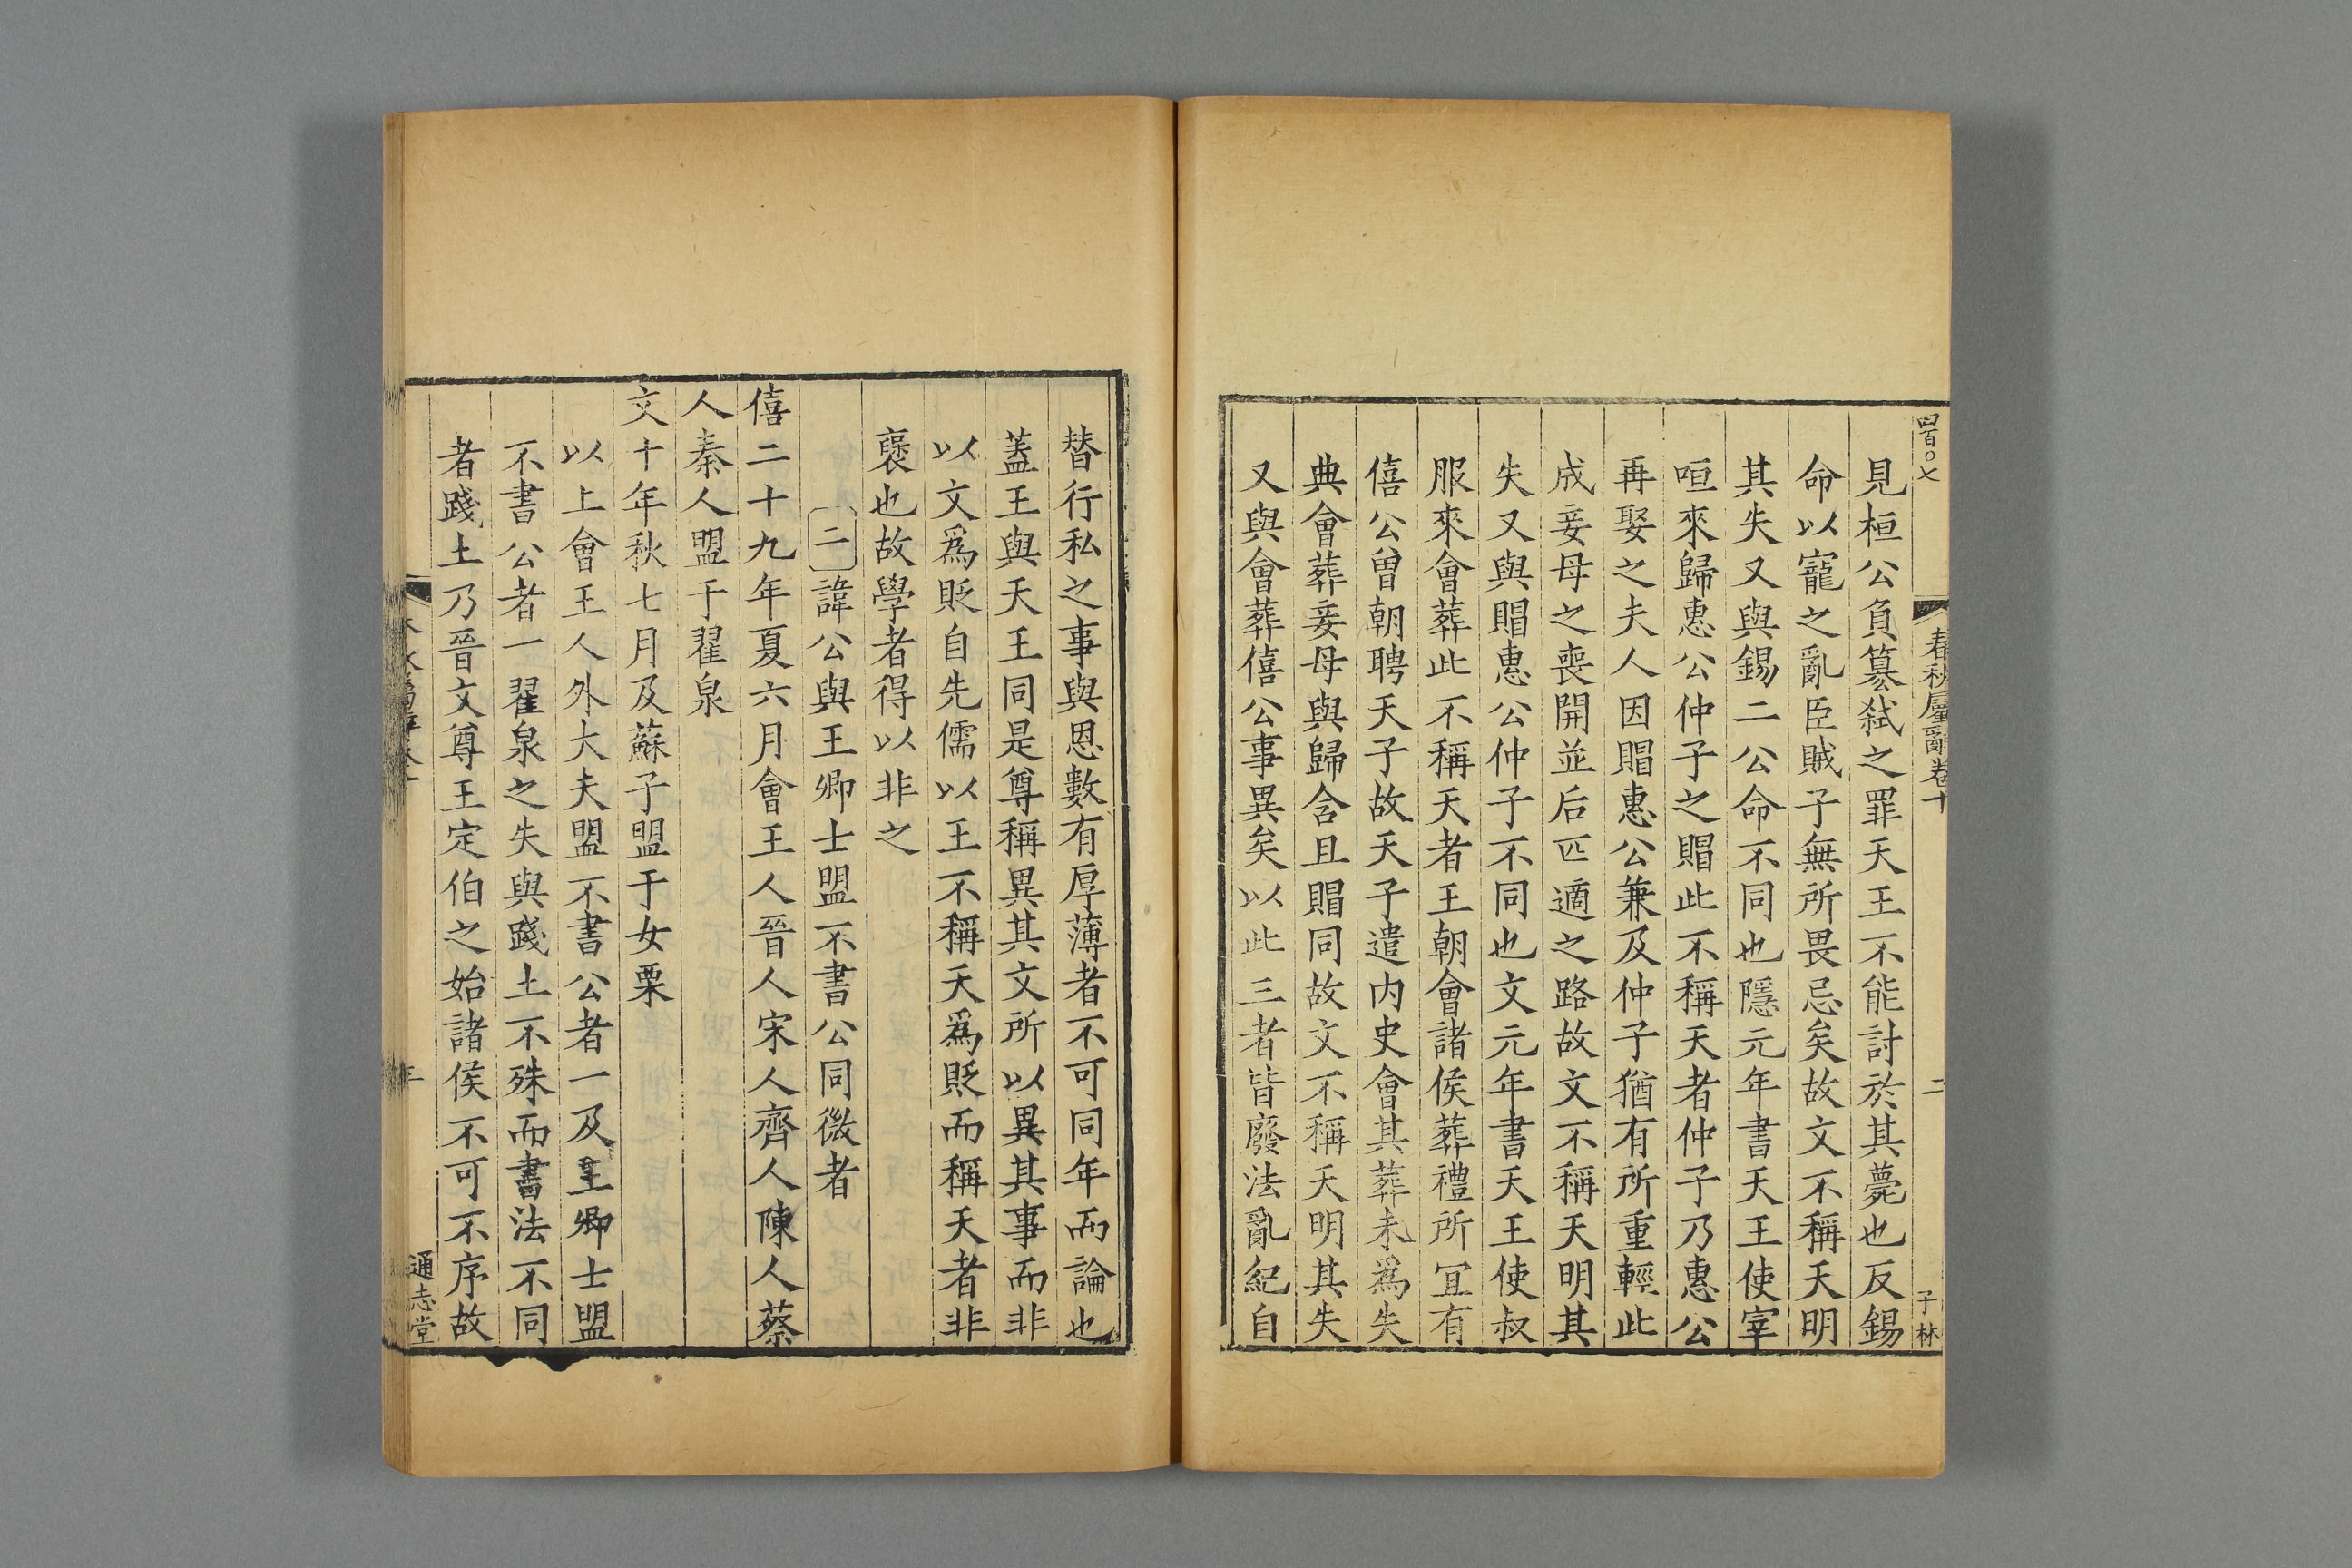 四百〇七
春秋屬辭卷十
二
子林
見桓公負篡弒之罪天王不能討於其薨也反錫
命以寵之亂臣賊子無所畏忌矣故文不稱天明
其失又與錫二公命不同也隱元年書天王使宰
咺來歸惠公仲子之賵此不稱天者仲子乃惠公
再娶之夫人因賵惠公兼及仲子猶有所重輕此
成妾母之喪開並后匹適之路故文不稱天明其
失又與賵惠公仲子不同也文元年書天王使叔
服來會葬此不稱天者王朝會諸侯葬禮所宜有
僖公曾朝聘天子故天子遣内史會其葬未爲失
典會葬妾母與歸含且賵同故文不稱天明其失
又與會葬僖公事異矣以此三者皆廢法亂紀自
替行私之事與恩數有厚薄者不可同年而論也
蓋王與天王同是尊稱異其文所以異其事而非
以文爲貶自先儒以王不稱天爲貶而稱天者非
襃也故學者得以非之
二諱公與王卿士盟不書公同微者
僖二十九年夏六月會王人晉人宋人齊人陳人蔡
人秦人盟于翟泉
文十年秋七月及蘇子盟于女栗
以上會王人外大夫盟不書公者一及王卿士盟
不書公者一翟泉之失與踐土不殊而書法不同
者踐土乃晉文尊王定伯之始諸侯不可不序故
通志堂